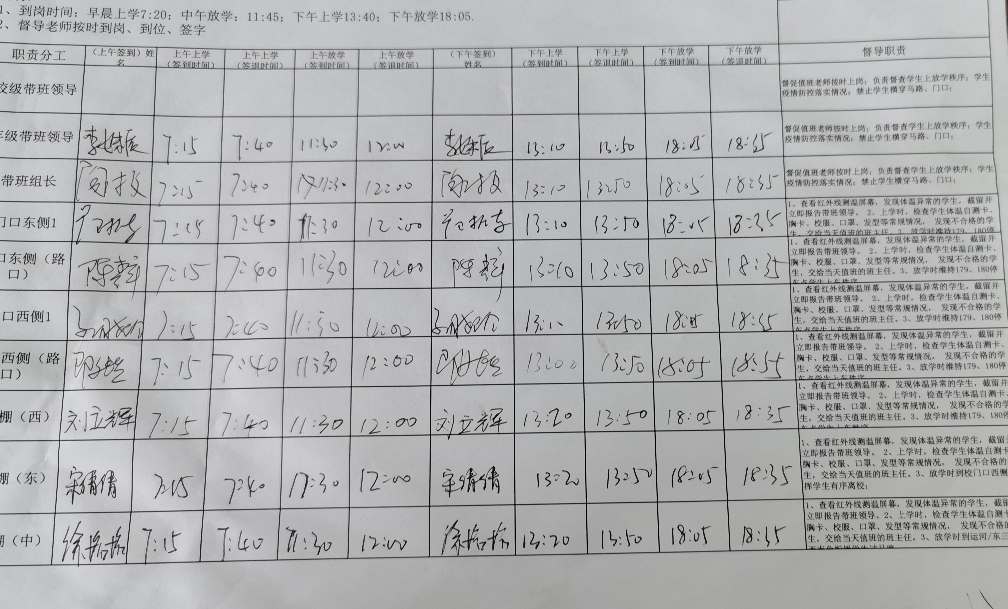 1、到岗时间：早晨上学7:20；中午放学：11:45；下午上学13:40；下午放学18:05.
2、督导老师按时到岗、到位、签字
职责分工 （上午签到）姓名 上午上学（签到时间） 上午上学（签退时间） 上午放学（签到时间） 上午放学（签退时间） （下午签到）姓名 下午上学（签到时间） 下午上学（签到时间） 下午放学（签到时间） 下午放学（签退时间） 督导职责
校级带班领导 督促值班老师按时上岗；负责督查学生上放学秩序；学生
疫情防控落实情况；禁止学生横穿马路、门口；
年级带班领导 7:15 7:40 11:30 12:00 13:10 13:50 18:05 18:35 督促值班老师按时上岗；负责督查学生上放学秩序；学生
疫情防控落实情况；禁止学生横穿马路、门口；
带班组长 7:15 7:40 11:30 12:00 13:10 13:50 18:05 18:35 督促值班老师按时上岗；负责督查学生上放学秩序；学生
疫情防控落实情况；禁止学生横穿马路、门口；
门口东侧1 7:15 7:40 11:30 12:00 13:10 13:50 18:05 18:35 1、查看红外线测温屏幕，发现体温异常的学生，截留并
立即报告带班领导。 2、上学时，检查学生体温自测卡、
胸卡、校服、口罩、发型等常规情况， 发现不合格的学
生，交给当天值班的班主任。3、放学时维持179、180停
口东侧（路口） 7:15 7:40 11:30 12:00 13:10 13:50 18:05 18:35 1、查看红外线测温屏幕，发现体温异常的学生，截留并
立即报告带班领导。 2、上学时，检查学生体温自测卡、
胸卡、校服、口罩、发型等常规情况， 发现不合格的学
生，交给当天值班的班主任。3、放学时维持179、180停
口西侧1 7:15 7:40 11:30 12:00 13:10 13:50 18:05 18:35 1、查看红外线测温屏幕，发现体温异常的学生，截留并
立即报告带班领导。 2、上学时，检查学生体温自测卡、
胸卡、校服、口罩、发型等常规情况， 发现不合格的学
生，交给当天值班的班主任。3、放学时维持179、180停
西侧（路口） 7:15 7:40 11:30 12:00 13:00 13:50 18:05 18:55 1、查看红外线测温屏幕，发现体温异常的学生，截留并
立即报告带班领导。 2、上学时，检查学生体温自测卡、
胸卡、校服、口罩、发型等常规情况， 发现不合格的学
生，交给当天值班的班主任。3、放学时维持179、180停
棚（西） 刘立辉 7:15 7:40 11:30 12:00 刘立辉 13:20 13:50 18:05 18:35 1、查看红外线测温屏幕，发现体温异常的学生，截留并
立即报告带班领导。 2、上学时，检查学生体温自测卡、
胸卡、校服、口罩、发型等常规情况， 发现不合格的学
生，交给当天值班的班主任。3、放学时维持179、180停
棚（东） 宋倩倩 7:15 7:40 11:30 12:00 宋倩倩 13:20 13:50 18:05 18:35 1、查看红外线测温屏幕，发现体温异常的学生，截留并
立即报告带班领导。 2、上学时，检查学生体温自测卡、
胸卡、校服、口罩、发型等常规情况， 发现不合格的学
生，交给当天值班的班主任。3、放学时到校门口西侧
挥学生有序离校；
棚（中） 7:15 7:40 11:30 12:00 13:20 13:50 18:05 18:35 1、查看红外线测温屏幕，发现体温异常的学生，截留并
立即报告带班领导。2、上学时，检查学生体温自测卡、
胸卡、校服、口罩、发型等常规情况， 发现不合格
生，交给当天值班的班主任。3、放学时到运河/东三